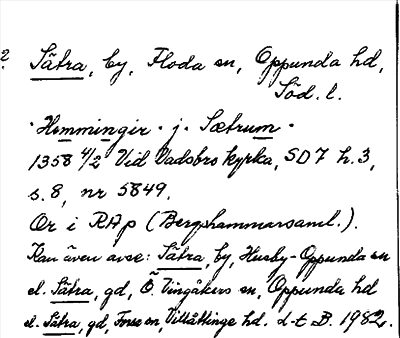 2. Sätra, by, Floda sn, Oppunda hd,
Söd. l.
"Hemmingir. j. Sætrum"
1358 4/2 Vid Vadsbro kyrka, SD 7 h. 3,
s. 8, nr 5849.
Or i RAp (Bergshammarsaml.).
Kan även avse: Sätra, by, Husby-Oppunda sn
el. Sätra, gd, Ö. Vingåkers sn, Oppunda hd
el. Sätra, gd, Forssa sn, Villåttinge hd. L-E B. 1982.